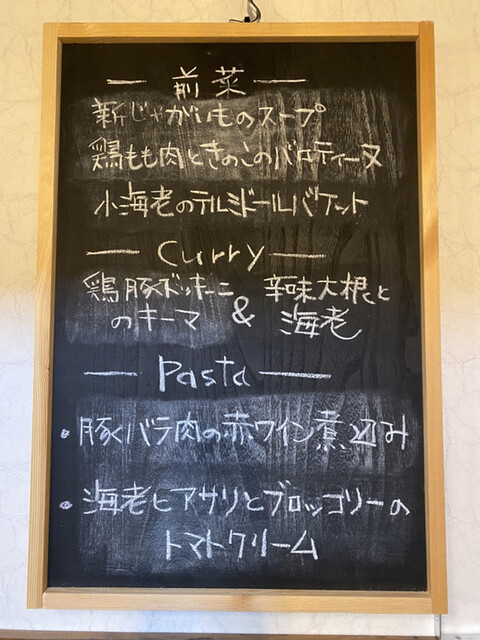 — 前菜 —
新じゃがいものスープ
鶏もも肉ときのこのバロティーヌ
小海老のテルミドールバケット
— Curry —
鶏豚ズッキーニ & 辛味大根と
のキーマ 海老
— Pasta —
・豚バラ肉の赤ワイン煮込み
・海老とアサリとブロッコリーの
トマトクリーム